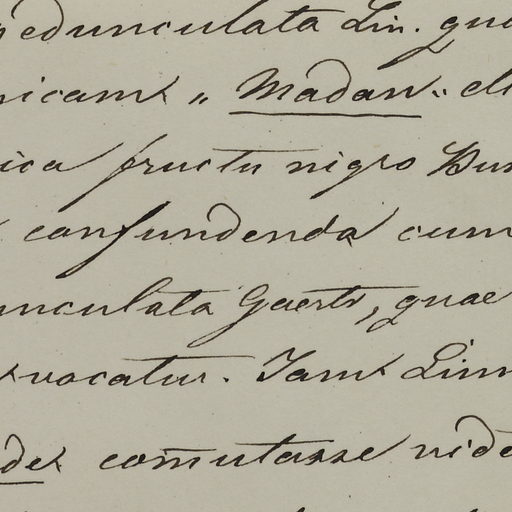 pedunculata Lin. qua
nicam „Madan" el
ica fructu nigro Bur
confundenda cum
unculata Gaertr, quae
vocatur. Jam Linn
de comutasse vide